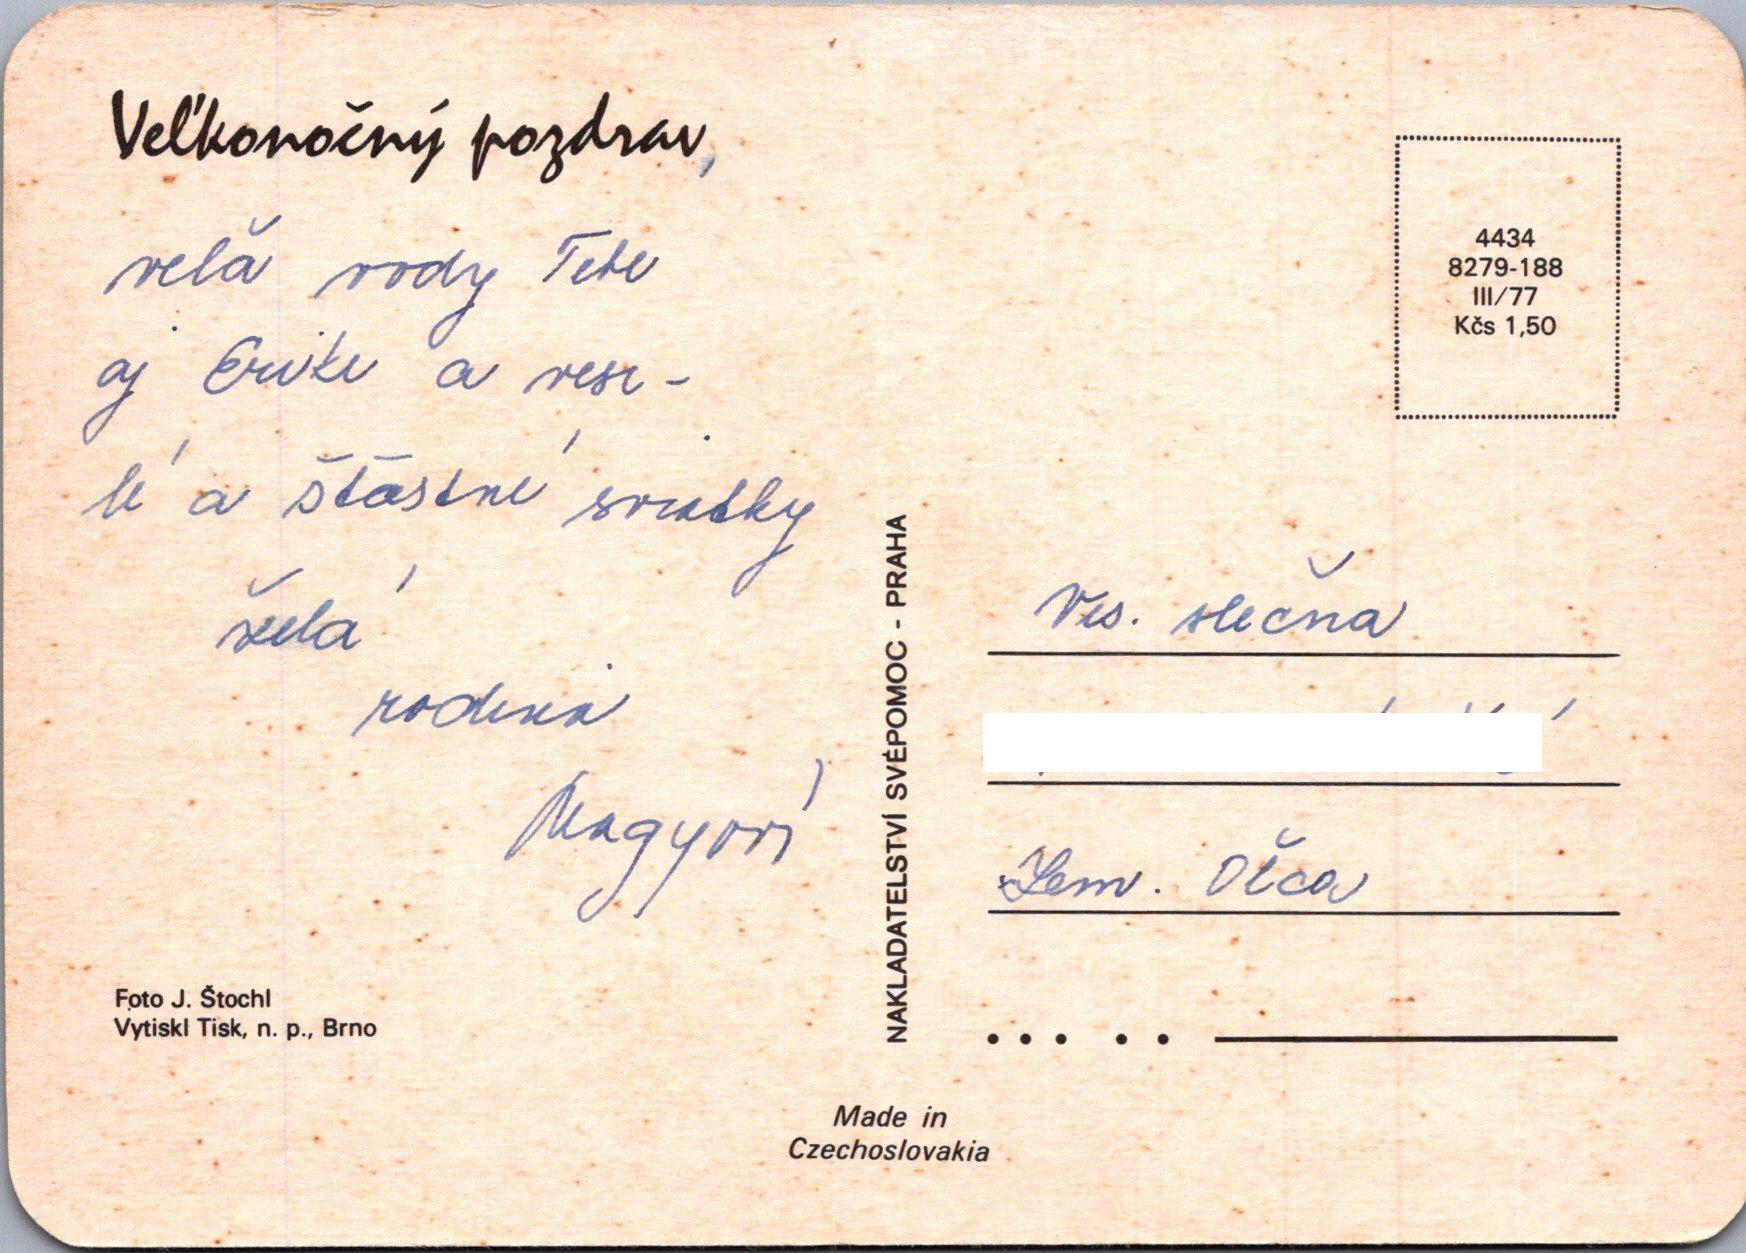 Veľkonočný pozdrav,
velǎ vody Tebe
aj Erike a vese-
lé a šťastné sviatky
želá
rodina
Magyori
4434
8279-188
III/77
Kčs 1,50
NAKLADATELSTVÍ SVÉPOMOC - PRAHA
Ves. slečna
Zem. Oľča
Foto J. Štochl
Vytiskl Tisk, n. p., Brno
Made in
Czechoslovakia